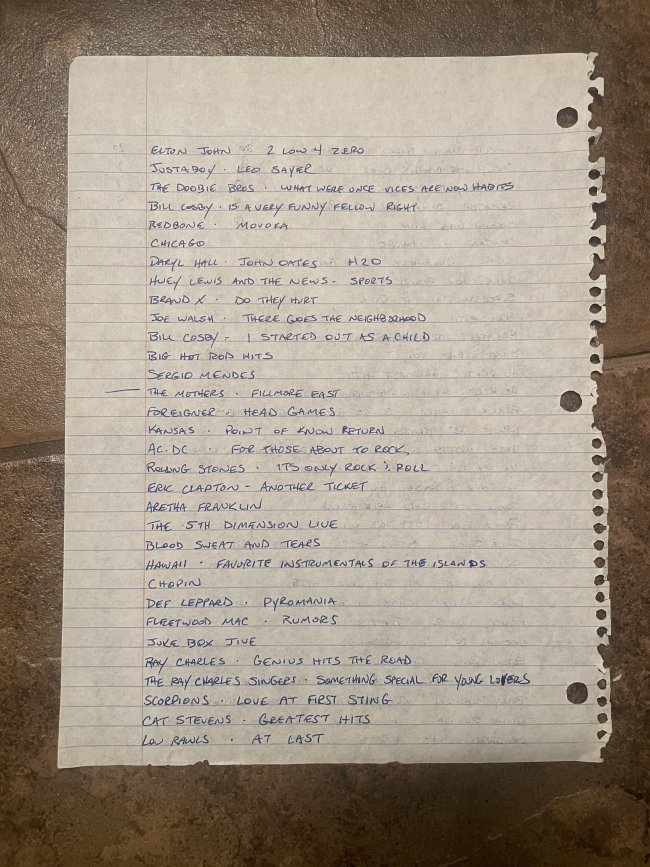 ELTON JOHN 2 LOW 4 ZERO
JUSTABOY · LEO SAYER
THE DOOBIE BROS · WHAT WERE ONCE VICES ARE NOW HABITS
BILL COSBY · IS A VERY FUNNY FELLOW RIGHT
REDBONE · MOVOKA
CHICAGO
DARYL HALL · JOHN OATES · H2O
HUEY LEWIS AND THE NEWS - SPORTS
BRAND X · DO THEY HURT
JOE WALSH · THERE GOES THE NEIGHBORHOOD
BILL COSBY - I STARTED OUT AS A CHILD
BIG HOT ROD HITS
SERGIO MENDES
THE MOTHERS · FILLMORE EAST
FOREIGNER · HEAD GAMES
KANSAS · POINT OF KNOW RETURN
AC·DC · FOR THOSE ABOUT TO ROCK,
ROLLING STONES · ITS ONLY ROCK % ROLL
ERIC CLAPTON - ANOTHER TICKET
ARETHA FRANKLIN
THE 5TH DIMENSION LIVE
BLOOD SWEAT AND TEARS
HAWAII · FAVORITE INSTRUMENTALS OF THE ISLANDS
CHOPIN
DEF LEPPARD · PYROMANIA
FLEETWOOD MAC · RUMORS
JUKE BOX JIVE
RAY CHARLES · GENIUS HITS THE ROAD
THE RAY CHARLES SINGERS · SOMETHING SPECIAL FOR YOUNG LOVERS
SCORPIONS · LOVE AT FIRST STING
CAT STEVENS · GREATEST HITS
LOU RAWLS · AT LAST